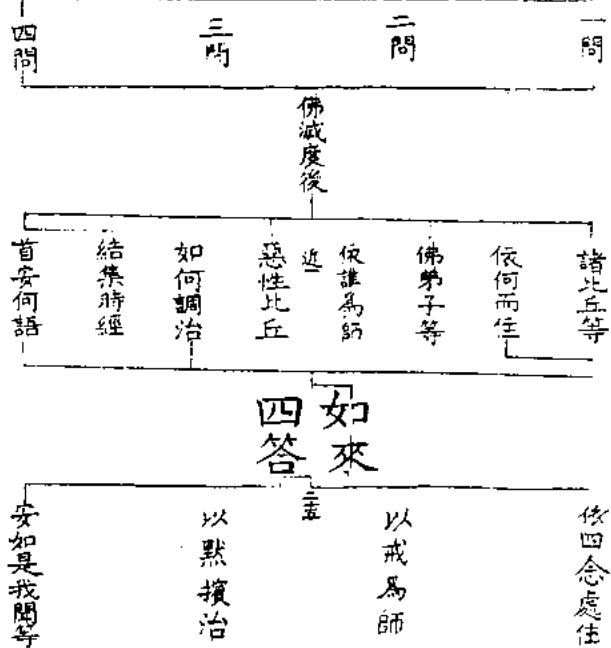 一問
二問
三問
四問
佛滅度後
諸比丘等
依何而住
佛弟子等
依誰為師
近一
惡性比丘
如何調治
結集時經
首安何語
如來
四答
二五
依四念處住
以戒為師
以默擯治
安如是我聞等